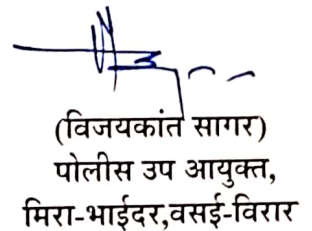 (विजयकांत सागर)
पोलीस उप आयुक्त,
मिरा-भाईदर,वसई-विरार